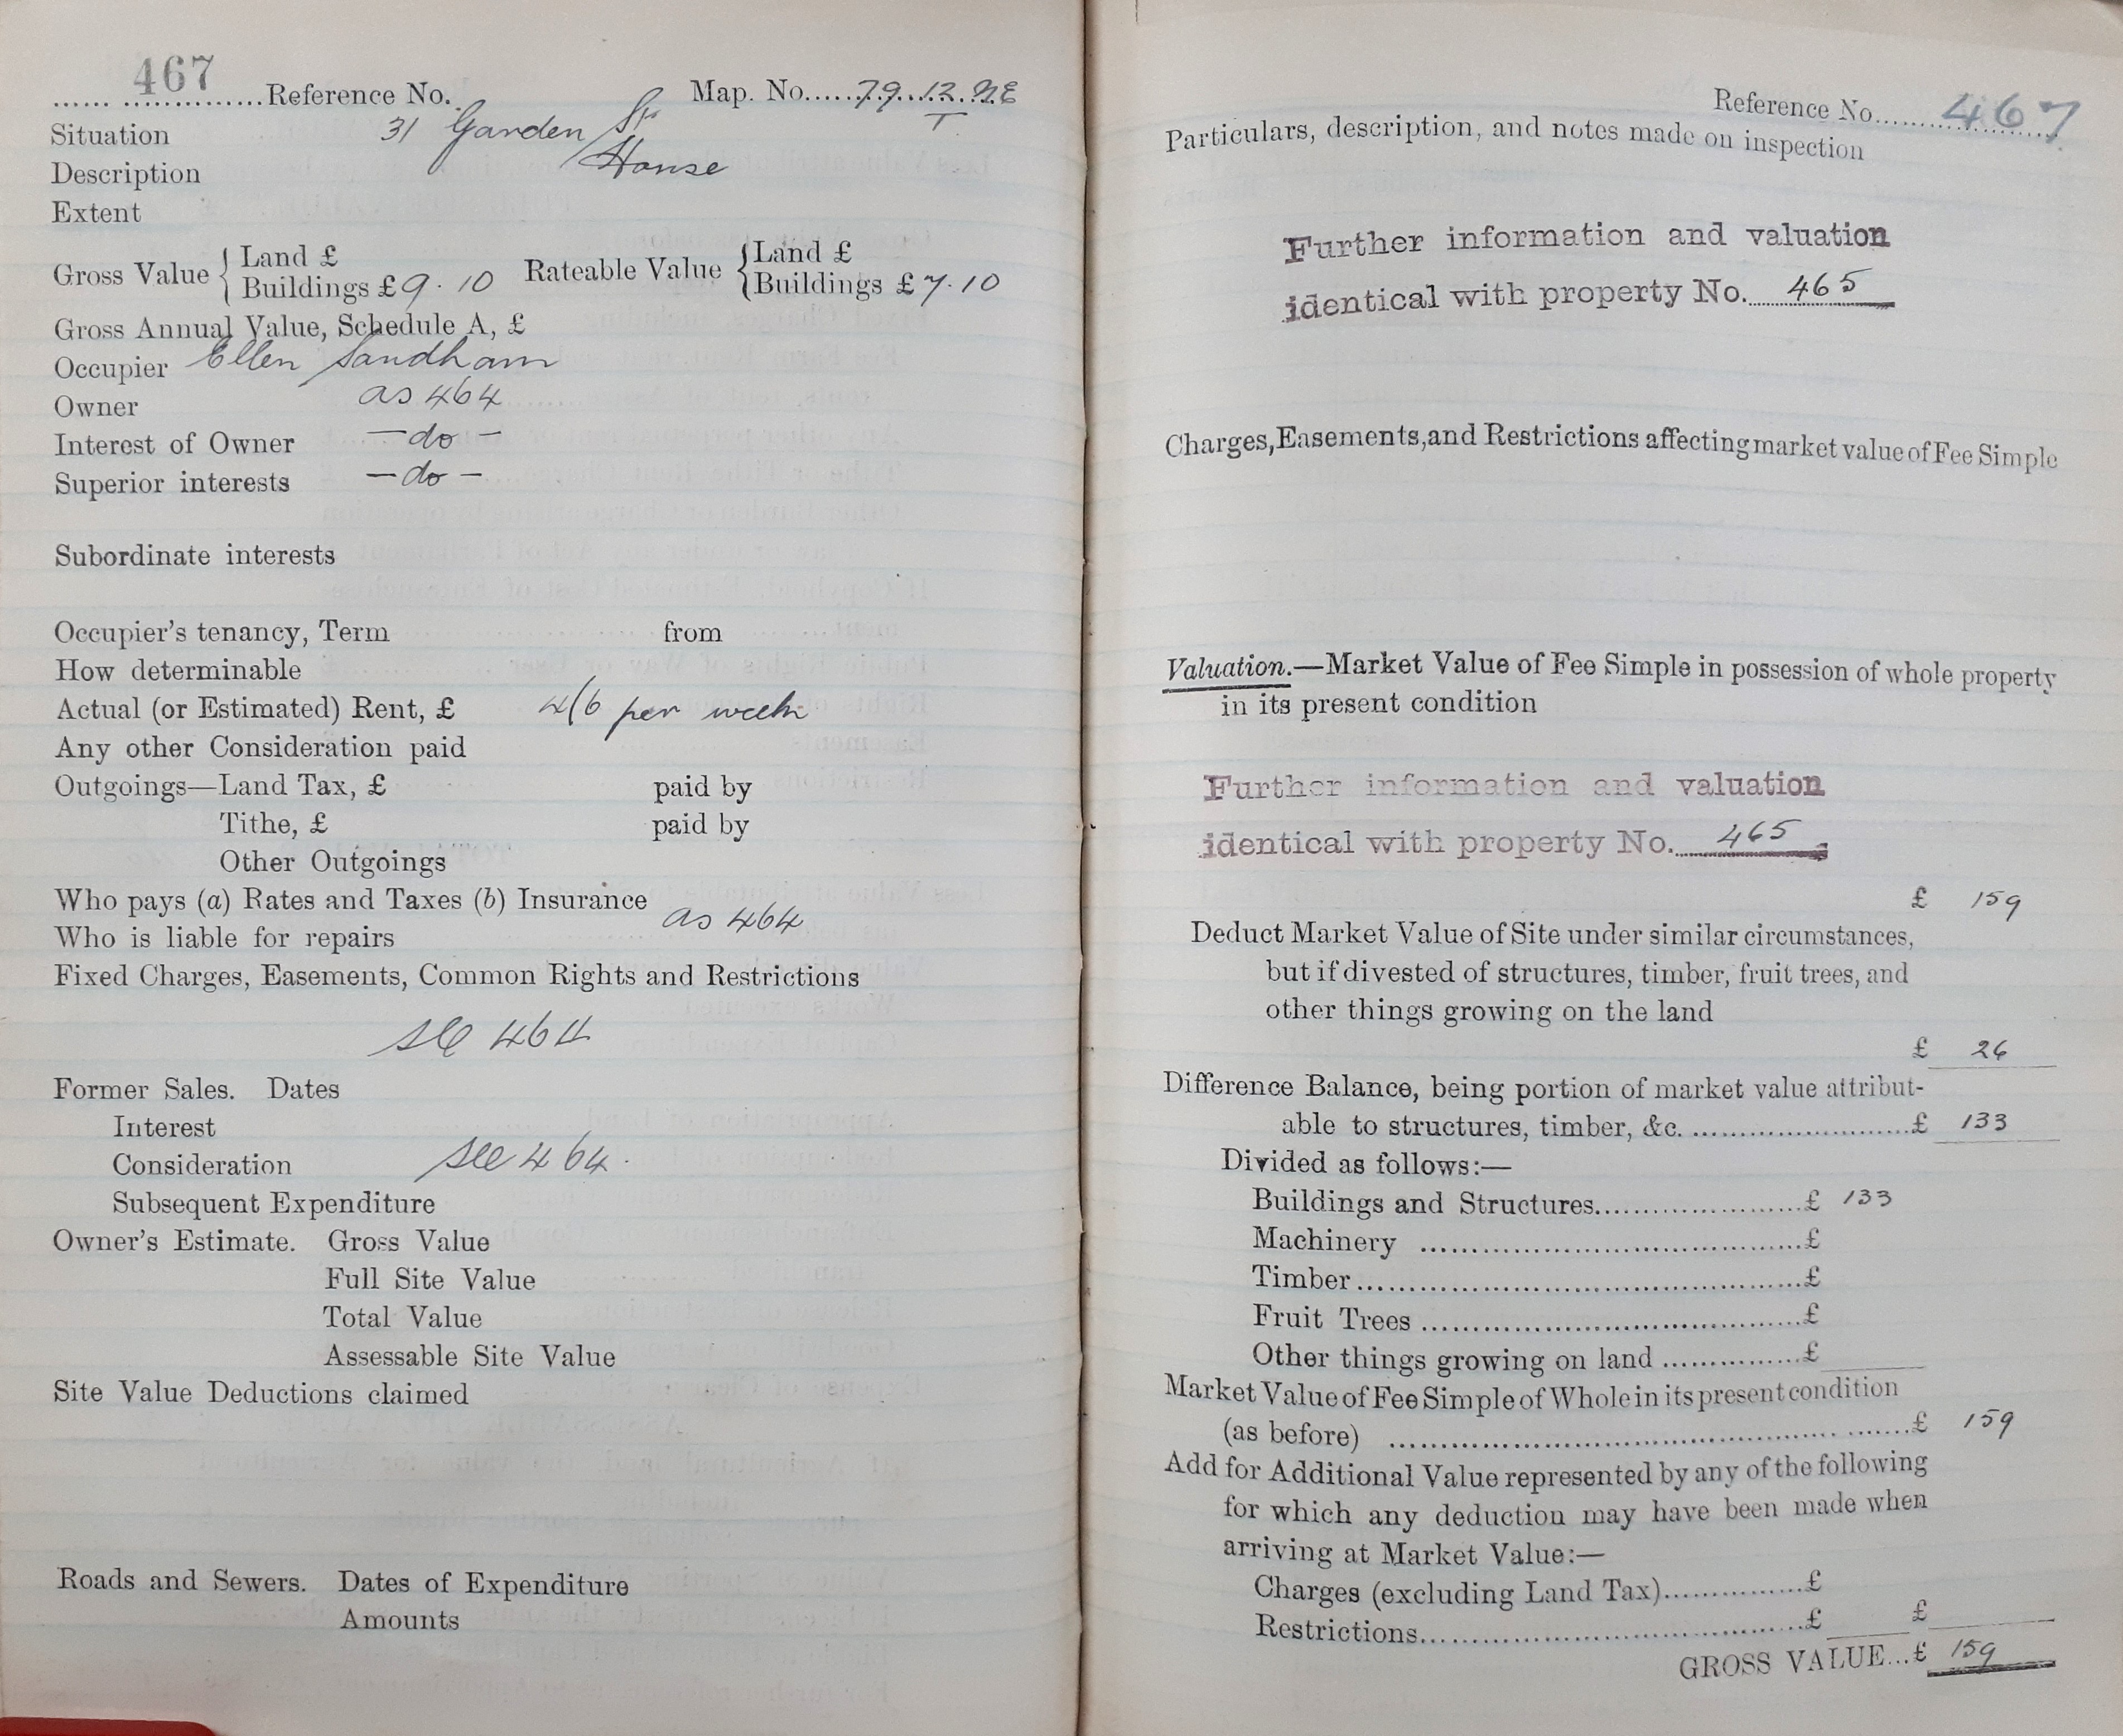 467
...... ..............Reference No. Map. No.....79.12.NE
T
Situation 31 Garden St
Description House
Extent
Gross Value { Land £
Buildings £ 9.10
Rateable Value { Land £
Buildings £ 7.10
Gross Annual Value, Schedule A, £
Occupier Ellen Sandham
Owner as 464
Interest of Owner — do —
Superior interests — do —
Subordinate interests
Occupier's tenancy, Term from
How determinable
Actual (or Estimated) Rent, £ 4/6 per week
Any other Consideration paid
Outgoings—Land Tax, £ paid by
Tithe, £ paid by
Other Outgoings
Who pays (a) Rates and Taxes (b) Insurance as 464
Who is liable for repairs
Fixed Charges, Easements, Common Rights and Restrictions
see 464
Former Sales. Dates
Interest
Consideration see 464.
Subsequent Expenditure
Owner's Estimate. Gross Value
Full Site Value
Total Value
Assessable Site Value
Site Value Deductions claimed
Roads and Sewers. Dates of Expenditure
Amounts
Reference No.....467
Particulars, description, and notes made on inspection
Further information and valuation
identical with property No. 465
Charges, Easements, and Restrictions affecting market value of Fee Simple
Valuation.—Market Value of Fee Simple in possession of whole property
in its present condition
Further information and valuation
identical with property No. 465
£ 159
Deduct Market Value of Site under similar circumstances,
but if divested of structures, timber, fruit trees, and
other things growing on the land
£ 26
Difference Balance, being portion of market value attribut-
able to structures, timber, &c. ........................£ 133
Divided as follows:—
Buildings and Structures......................£ 133
Machinery ........................................£
Timber..............................................£
Fruit Trees ........................................£
Other things growing on land ...............£
Market Value of Fee Simple of Whole in its present condition
(as before) ..................................................£ 159
Add for Additional Value represented by any of the following
for which any deduction may have been made when
arriving at Market Value:—
Charges (excluding Land Tax)...............£
Restrictions..........................................£ £
GROSS VALUE...£ 159